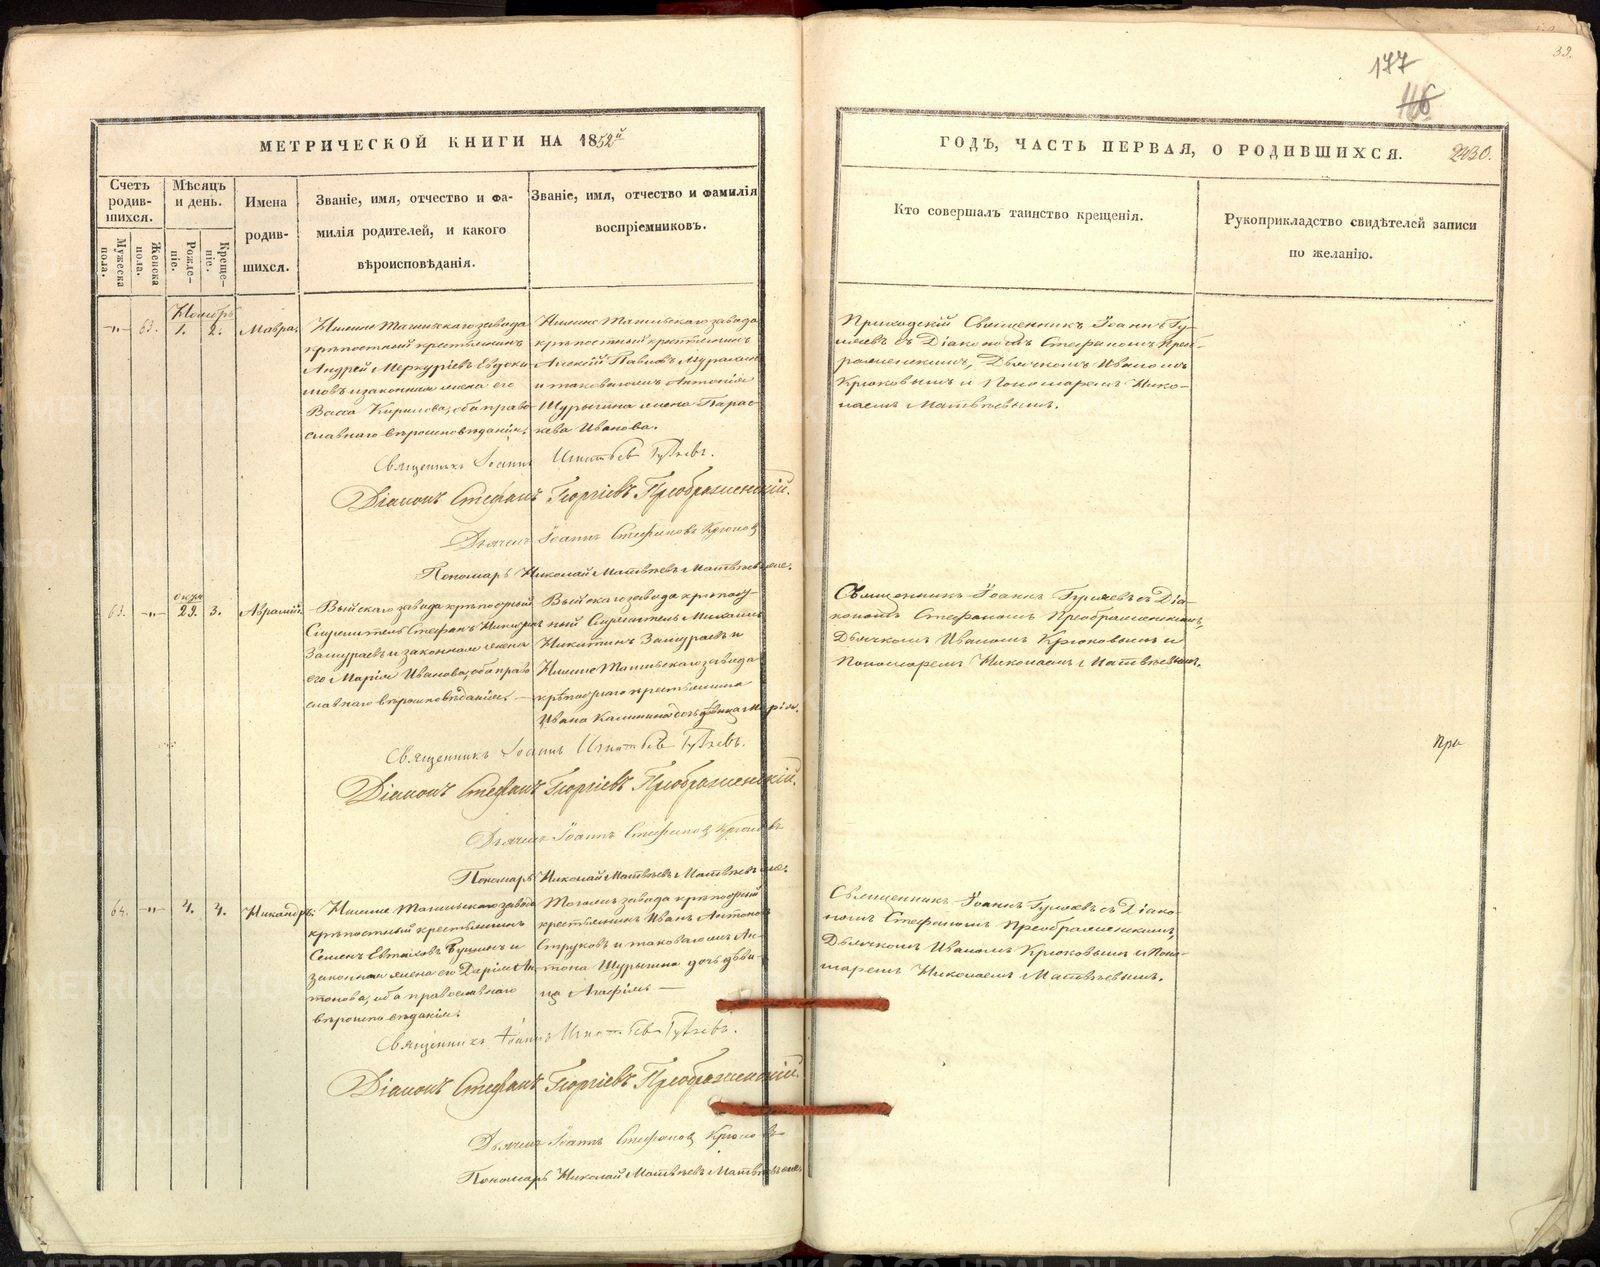 177
116
32.
МЕТРИЧЕСКОЙ КНИГИ НА 1852й
ГОДЪ, ЧАСТЬ ПЕРВАЯ, О РОДИВШИХСЯ.
2430.
Счетъ родившихся.
Мѣсяцъ и день.
Имена родившихся.
Званіе, имя, отчество и фамилія родителей, и какого вѣроисповѣданія.
Званіе, имя, отчество и фамилія воспріемниковъ.
Кто совершалъ таинство крещенія.
Рукоприкладство свидѣтелей записи по желанію.
Мужеска пола.
Женска пола.
Рожденіе.
Крещеніе.
Ноябрь
-"- 63. 1. 2. Мавра.
Нижне Тагильскаго завода
крѣпостный крестьянинъ
Андрей Меркурьевъ Евдоки
мовъ и законная жена его
Васса Кирилова, оба право
славнаго вѣроисповѣданія.
Нижне Тагильскаго завода
крѣпостный крестьянинъ
Алексій Павловъ
и таковагожъ Антонія
Шурыгина жена Парас
кева Иванова.
Приходскій Священникъ Іоаннъ Гу
ляевъ съ Діакономъ Стефаномъ Прео
браженскимъ, Дьячкомъ Иваномъ
Крюковымъ и Пономаремъ Нико
лаемъ Матвѣевымъ.
Священникъ Іоаннъ Игнатьевъ Гуляевъ.
Діаконъ Стефанъ Георгіевъ Преображенскій.
Дьячекъ Іоаннъ Стефановъ Крюковъ
Пономарь Николай Матвѣевъ Матвѣевыхъ.
63. -"- 29. 3. Аврамій.
Выйскаго завода крѣпостный
Служитель Стефанъ
и законная жена
его Марія Иванова, оба право
славнаго вѣроисповѣданія. —
Выйскаго завода крѣпост
ный Служитель Михаилъ
Никитинъ и
Нижне Тагильскаго завода
крѣпостнаго крестьянина
Ивана Калинина дочь дѣвица Марія.
Священникъ Іоаннъ Гуляевъ съ Діа
кономъ Стефаномъ Преображенскимъ,
Дьячкомъ Иваномъ Крюковымъ и
Пономаремъ Николаемъ Матвѣевымъ.
Священникъ Іоаннъ Игнатьевъ Гуляевъ.
Діаконъ Стефанъ Георгіевъ Преображенскій.
Дьячекъ Іоаннъ Стефановъ Крюковъ
Пономарь Николай Матвѣевъ Матвѣевыхъ.
При
64. -"- 4. 4. Никандръ.
Нижне Тагильскаго завода
крѣпостный крестьянинъ
Семенъ и
законная жена его Дарія Ан
тонова, оба православнаго
вѣроисповѣданія.
Тогожъ завода крѣпостный
крестьянинъ Иванъ Антоновъ
Струковъ и таковагожъ Ан
тона Шурыгина дочь дѣви
ца Агафія —
Священникъ Іоаннъ Гуляевъ съ Діако
номъ Стефаномъ Преображенскимъ,
Дьячкомъ Иваномъ Крюковымъ и Поно
маремъ Николаемъ Матвѣевымъ.
Священникъ Іоаннъ Игнатьевъ Гуляевъ.
Діаконъ Стефанъ Георгіевъ Преображенскій.
Дьячекъ Іоаннъ Стефановъ Крюковъ
Пономарь Николай Матвѣевъ Матвѣевыхъ
METRIKI.GASO-URAL.RU